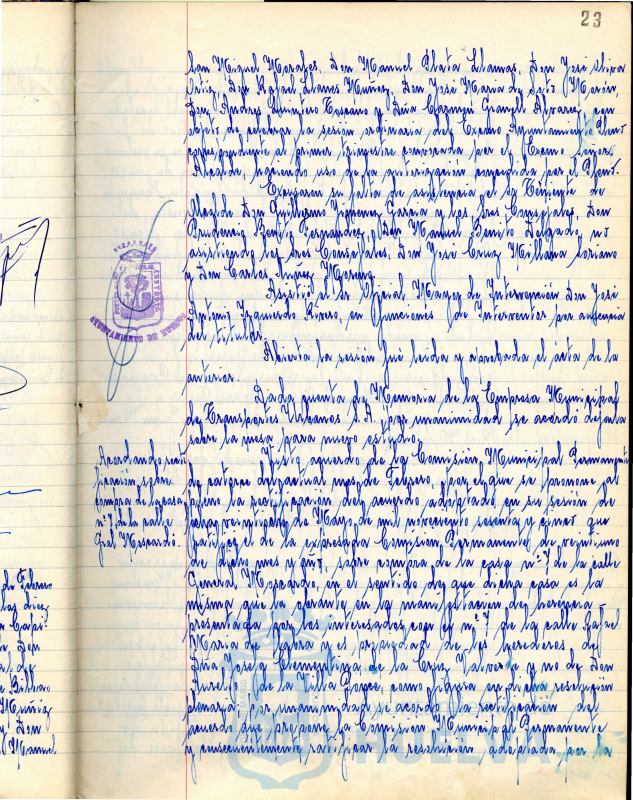 23
Don Miguel Morales, Don Manuel Plata Llamas, Don José Oliva
Ortiz, Don Rafael Llanes Muñoz, Don José María de Soto Morón,
Don Andrés Quintero Toscano y Dña Carmen Álvarez, con
objeto de celebrar la sesión ordinaria del Excmo Ayuntamiento Pleno
correspondiente al primer trimestre convocada por el Excmo señor
Alcalde, haciendo uso de la autorización concedida por el Pleno.
Excusaron su falta de asistencia el Sr Teniente de
Alcalde Don Guillermo Jiménez García y los Sres Concejales, Don
Prudencio Fernández, Don Manuel Benito Delgado, no
asistiendo los Sres Concejales, Don José Cruz Millana Soriano
y Don Carlos Moreno.
Asistió el Sr Oficial Mayor de Intervención Don José
Antonio Izquierdo Rivero, en funciones de Interventor por ausencia
del titular.
Abierta la sesión fué leida y aprobada el acta de la
anterior.
Dada cuenta de Memoria de la Empresa Municipal
de Transportes Urbanos S.A. por unanimidad se acordó dejarla
sobre la mesa para nuevo estudio.
Acordando recti-
ficación, sobre
compra de la casa
nº 7 de la calle
Gral Moscardó.
Visto acuerdo de la Comisión Municipal Permanente
de catorce del actual mes de Febrero, por el que se propone al
pleno la rectificación del acuerdo adoptado en su sesión de
fecha veintiseis de Mayo de mil novecientos sesenta y cinco que
ratificó el de la expresada Comisión Permanente de veintiuno
de dicho mes y año, sobre compra de la casa nº 7 de la calle
General Moscardó, en el sentido de que dicha casa es la
misma que la obrante en la manifestación de herencia
presentada por los interesados con el nº 7 de la calle Rafael
María de Labra y es propiedad de los herederos de
Dña Josefa Clementina de la Cruz y no de Don
Aurelio de la Villa López, como figura en dicha resolución
plenaria, por unanimidad se acordó la rectificación del
acuerdo que propone la Comisión Municipal Permanente
y consecuentemente, ratificar la resolución adoptada por la
de Febrero
las diez
Don
de
Bilbao
Muñoz
y Don
Manuel
HUELVA